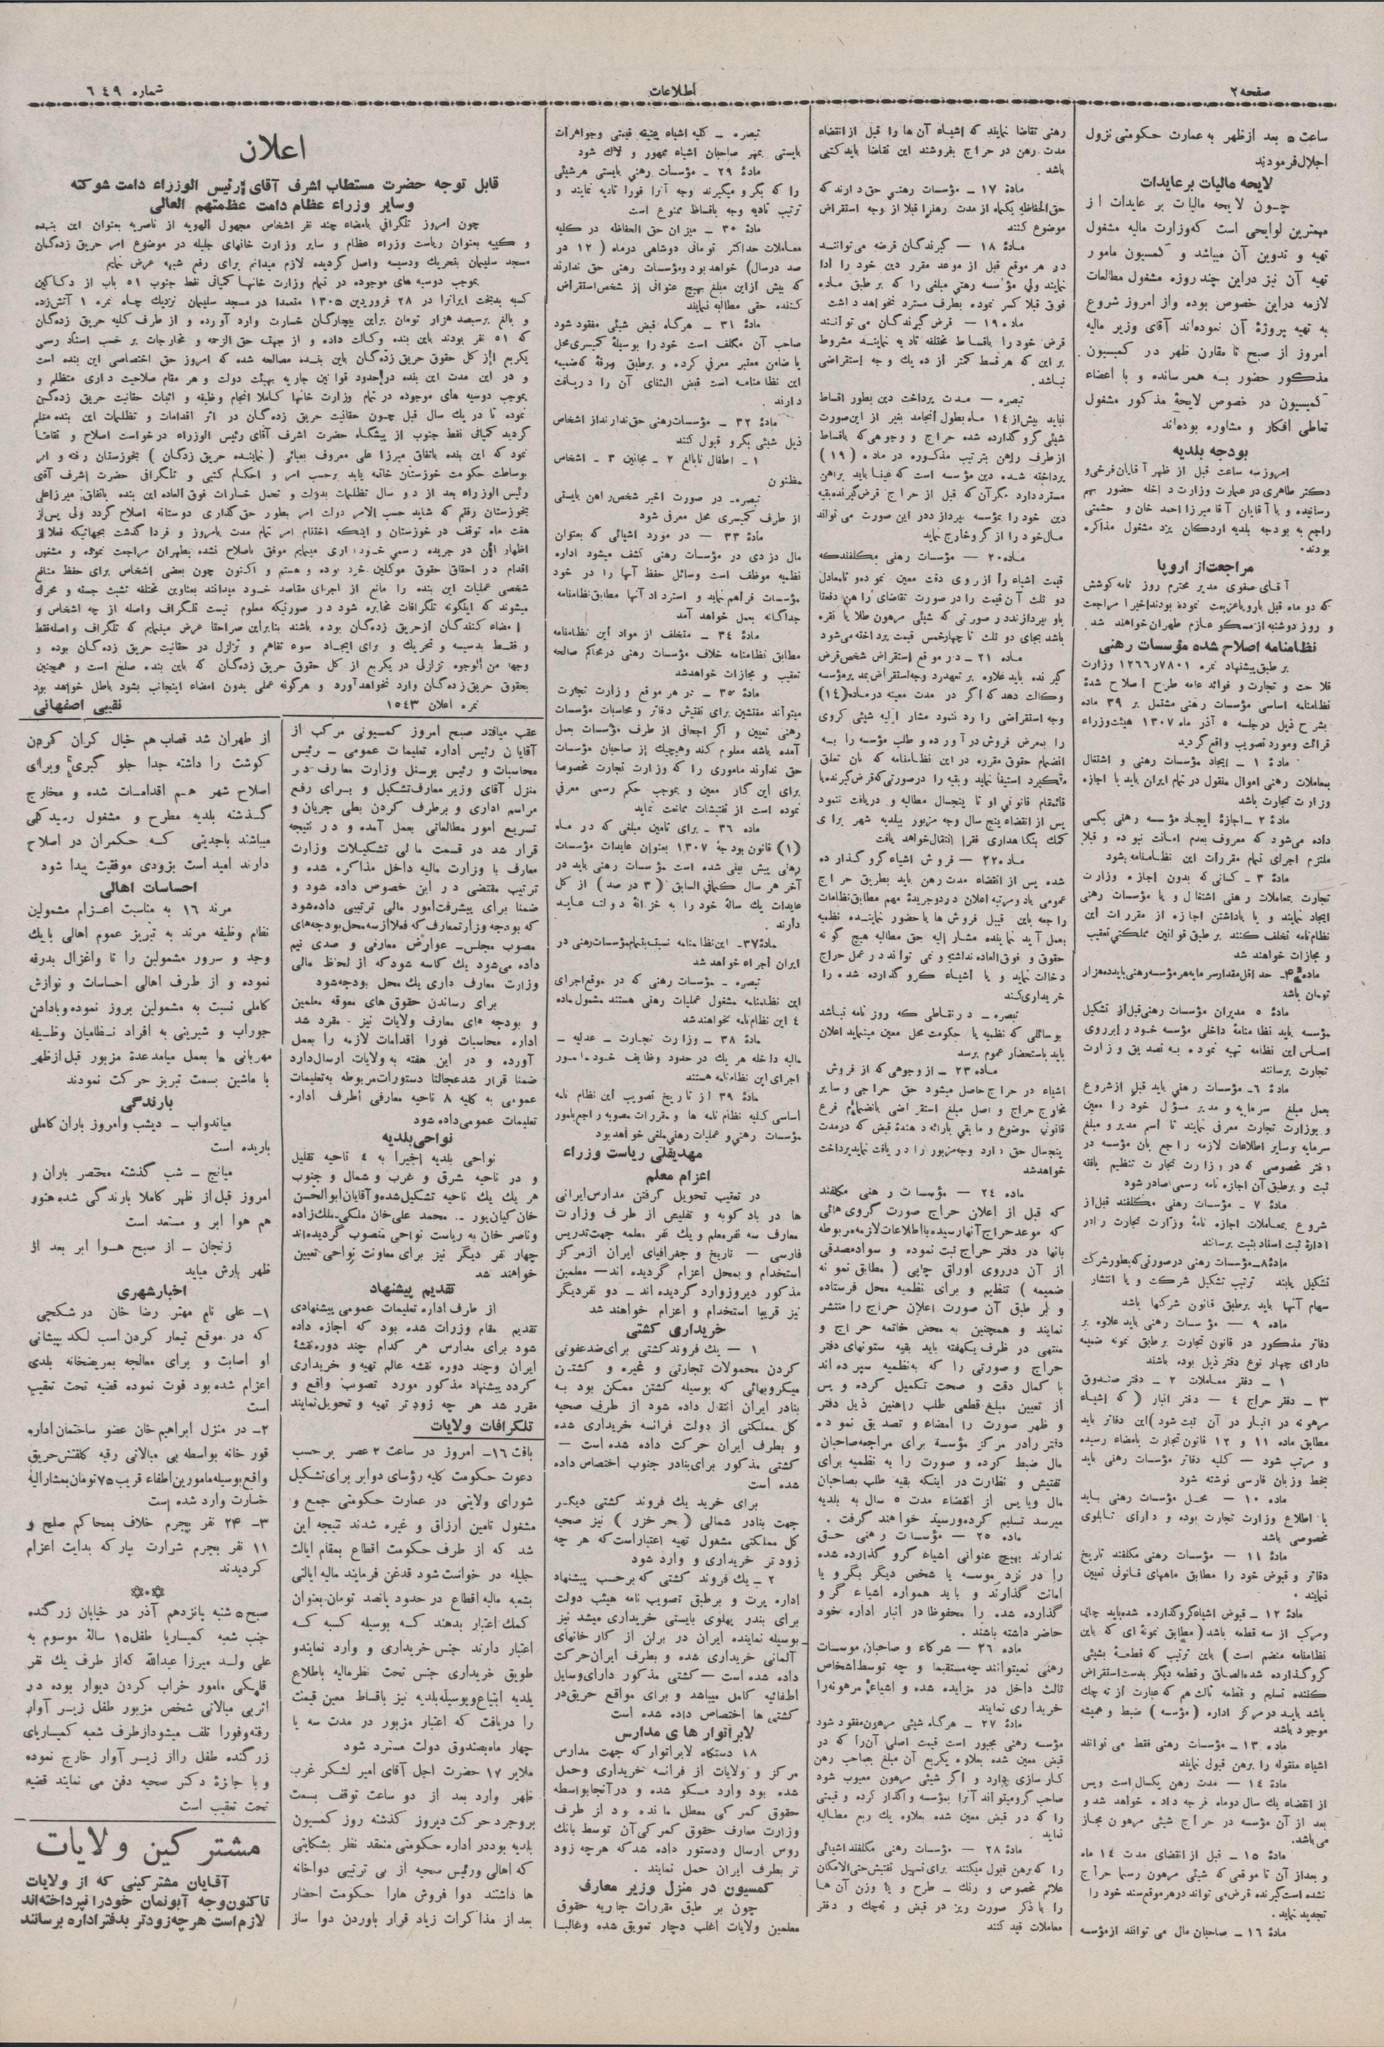 صفحه ۲
اطلاعات
شماره ٦٤٩
ساعت ۵ بعد ازظهر به عمارت حکومتی نزول
اجلال فرمودند
لایحه مالیات بر عایدات
چون لایحه مالیات بر عایدات از
مهمترین لوایحی است که وزارت مالیه مشغول
تهیه و تدوین آن میباشد و کمسیون مامور
تهیه آن نیز دراین چند روزه مشغول مطالعات
لازمه دراین خصوص بوده و از امروز شروع
به تهیه پروژهٔ آن نموده‌اند آقای وزیر مالیه
امروز از صبح تا مقارن ظهر در کمیسیون
مذکور حضور بهم رسانده و با اعضاء
کمیسیون در خصوص لایحهٔ مذکور مشغول
تعاطی افکار و مشاوره بوده‌اند
بودجه بلدیه
امروز سه ساعت قبل از ظهر آقایان فرخی و
دکتر طاهری در عمارت وزارت داخله حضور بهم
رسانیده و با آقایان آقا میرزا احمد خان و حشمتی
راجع به بودجه بلدیه اردکان یزد مشغول مذاکره
بودند.
مراجعت از اروپا
آقای صفوی مدیر محترم روز نامه کوشش
که دو ماه قبل باروپا عزیمت نموده بودند اخیرا مراجعت
و روز دوشنبه از مسکو عازم طهران خواهند شد
نظامنامه اصلاح شده مؤسسات رهنی
برطبق پیشنهاد نمره ۷۸۰۱ر۱۲٦٦ وزارت
فلاحت و تجارت و فوائد عامه طرح اصلاح شدهٔ
نظامنامه اساسی مؤسسات رهنی مشتمل بر ۳۹ ماده
بشرح ذیل درجلسه ۵ آذر ماه ۱۳۰۷ هیئت وزراء
قرائت ومورد تصویب واقع گردید
مادهٔ ۱ – ایجاد مؤسسات رهنی و اشتغال
بمعاملات رهنی اموال منقول در تمام ایران باید با اجازه
وزارت تجارت باشد
مادهٔ ۲ – اجازهٔ ایجاد مؤسسه رهنی بکسی
داده میشود که معروف بعدم امانت نبوده و قبلا
ملتزم اجرای تمام مقررات این نظامنامه بشود
مادهٔ ۳ – کسانی که بدون اجازه وزارت
تجارت بمعاملات رهنی اشتغال و یا مؤسسات رهنی
ایجاد نمایند و یا با داشتن اجازه از مقررات این
نظامنامه تخلف کنند برطبق قوانین مملکتی تعقیب
و مجازات خواهند شد
ماده ۴ – حد اقل مقدار سرمایه هر مؤسسه رهنی باید ده هزار
تومان باشد
مادهٔ ۵ مدیران مؤسسات رهنی قبل از تشکیل
مؤسسه باید نظامنامهٔ داخلی مؤسسه خود را بر روی
اساس این نظامه تهیه نموده به تصدیق وزارت
تجارت برسانند
مادهٔ ٦ – مؤسسات رهنی باید قبل از شروع
بعمل مبلغ سرمایه و مدیر مسؤل خود را معین
و بوزارت تجارت معرفی نمایند تا اسم مدیر و مبلغ
سرمایه وسایر اطلاعات لازمه راجع بآن مؤسسه در
دفتر مخصوصی که در وزارت تجارت تنظیم یافته
ثبت و برطبق آن اجازه نامه رسمی صادر شود
مادهٔ ۷ – مؤسسات رهنی مکلفند قبل از
شروع بمعاملات اجازه نامهٔ وزارت تجارت را در
ادارهٔ ثبت اسناد بثبت برسانند
مادهٔ ۸ – مؤسسات رهنی درصورتی که بطور شرکت
تشکیل یابند ترتیب تشکیل شرکت و یا انتشار
سهام آنها باید برطبق قانون شرکتها باشد
مادهٔ ۹ – مؤسسات رهنی باید علاوه بر
دفاتر مذکور در قانون تجارت برطبق نمونه ضمیمه
دارای چهار نوع دفتر ذیل بوده باشند
۱ – دفتر معاملات ۲ – دفتر صندوق
۳ – دفتر حراج ۴ – دفتر انبار (که اشیاء
مرهونه در انبار در آن ثبت شود) این دفاتر باید
مطابق ماده ۱۱ و ۱۲ قانون تجارت بامضاء رسیده
و مرتب شود – کلیه دفاتر مؤسسات رهنی باید
بخط وزبان فارسی نوشته شود
ماده ۱۰ – محل مؤسسات رهنی باید
با اطلاع وزارت تجارت بوده و دارای تابلوی
مخصوصی باشد
مادهٔ ۱۱ – مؤسسات رهنی مکلفند تاریخ
دفاتر و قبوض خود را مطابق ماههای قانونی تعیین
نمایند .
مادهٔ ۱۲ – قبوض اشیاء گرو گذارده شده باید چاپی
ومرکب از سه قطعه باشد (مطابق نمونه ای که باین
نظامنامه منضم است) باین ترتیب که قطعهٔ بشیئی
گروگذارده شده الصاق و قطعه دیگر بدست استقراض
کننده تسلیم و قطعه ثالث هم که عبارت از ته چک
باشد باید در مرکز اداره (مؤسسه) ضبط و همیشه
موجود باشد
ماده ۱۳ – مؤسسات رهنی فقط می توانند
اشیاء منقوله را برهن قبول نمایند
مادهٔ ۱۴ – مدت رهن یکسال است وپس
از انقضاء یک سال دوماه فرجه داده خواهد شد و
بعد از آن مؤسسه در حراج شیئی مرهون مجاز
می باشد.
مادهٔ ۱۵ – قبل از انقضای مدت ۱۴ ماه
و بعد از آن تا موقعی که شیئی مرهون رسما حراج
نشده است گیرنده قرض می تواند در هر موقع سند خود را
تجدید نماید.
مادهٔ ۱٦ – صاحبان مال می توانند از مؤسسه
رهنی تقاضا نمایند که اشیاء آن ها را قبل از انقضاء
مدت رهن در حراج بفروشند این تقاضا باید کتبی
باشد.
مادهٔ ۱۷ – مؤسسات رهنی حق دارند که
حق الحفاظه یکماه از مدت رهن را قبلا از وجه استقراض
موضوع کنند
مادهٔ ۱۸ – گیرندگان قرضه می توانند
در هر موقع قبل از موعد مقرر دین خود را ادا
نمایند ولی مؤسسه رهنی مبلغی را که برطبق ماده
فوق قبلا کسر نموده بطرف مسترد نخواهد داشت
ماده ۱۹ – قرض گیرندگان می توانند
قرض خود را باقساط مختلفه تادیه نمایند مشروط
بر این که هر قسط کمتر از ده یک وجه استقراضی
نباشد.
تبصره – مدت پرداخت دین بطور اقساط
نباید بیش از ۱۴ ماه بطول انجامد بغیر از این صورت
شیئی گرو گذارده شده حراج و وجوهی که باقساط
از طرف راهن بترتیب مذکوره در ماده (۱۹)
پرداخته شده دین مؤسسه است که عینا باید براهن
مسترد دارد مگر آن که قبل از حراج قرض گیرنده بقیه
دین خود را بمؤسسه بپردازد در این صورت می تواند
مال خود را از گرو خارج نماید
ماده ۲۰ – مؤسسات رهنی مکلفند که
قیمت اشیاء را از روی دقت معین نموده و تا معادل
دو ثلث آن قیمت را در صورت تقاضای راهن دفعتا
باو بپردازند در صورتی که شیئی مرهون طلا یا نقره
باشد بجای دو ثلث تا چهار خمس قیمت پرداخته می شود
ماده ۲۱ – در موقع استقراض شخص قرض
گیرنده باید علاوه بر تعهد رد وجه استقراض بمدیر مؤسسه
وکالت دهد که اگر در مدت معینه در ماده (۱۴)
وجه استقراضی را رد ننمود مشار الیه شیئی گروی
را بمعرض فروش در آورده و طلب مؤسسه را به
انضمام حقوق مقرره در این نظامنامه که بآن تعلق
میگیرد استیفا نماید و بقیه را درصورتی که قرض گیرنده یا
قائمقام قانونی او تا پنجسال مطالبه و دریافت ننمود
پس از انقضاء پنج سال وجه مزبور ببلدیه شهر برای
کمک بنگاهداری فقرا انتقال خواهد یافت
ماده ۲۲ – فروش اشیاء گرو گذارده
شده پس از انقضاء مدت رهن باید بطریق حراج
عمومی با دو مرتبه اعلان در دو جریدهٔ مهم مطابق نظامات
راجعه باین قبیل فروش ها با حضور نماینده نظمیه
بعمل آید نماینده مشار الیه حق مطالبه هیچ گونه
حقوق و فوق العاده نداشته و نمی تواند در عمل حراج
دخالت نماید و یا اشیاء گرو گذارده شده را
خریداری کند
تبصره – در نقاطی که روز نامه نباشد
بوسائلی که نظمیه یا حکومت محل معین مینماید اعلان
باید باستحضار عموم برسد
ماده ۲۳ – از وجوهی که از فروش
اشیاء در حراج حاصل میشود حق حراجی و سایر
مخارج حراج و اصل مبلغ استقراضی بانضمام فرع
قانونی موضوع و ما بقی بارائه دهندهٔ قبض که در مدت
پنجسال حق دارد وجه مزبور را دریافت نماید پرداخت
خواهد شد
ماده ۲۴ – مؤسسات رهنی مکلفند
که قبل از اعلان حراج صورت گروی هائی
که موعد حراج آنها رسیده با اطلاعات لازمه مربوطه
بآنها در دفتر حراج ثبت نموده و سواد مصدقی
از آن در روی اوراق چاپی (مطابق نمونه
ضمیمه) تنظیم و برای نظمیه محل فرستاده
و بر طبق آن صورت اعلان حراج را منتشر
نمایند و همچنین به محض خاتمه حراج و
منتهی در ظرف یکهفته باید بقیه ستونهای دفتر
حراج و صورتی را که بنظمیه سپرده اند
با کمال دقت و صحت تکمیل کرده و پس
از تعیین مبلغ قطعی طلب راهنین ذیل دفتر
و ظهر صورت را امضاء و تصدیق نموده
دفتر را در مرکز مؤسسه برای مراجعه صاحبان
مال ضبط کرده و صورت را به نظمیه برای
تفتیش و نظارت در اینکه بقیه طلب بصاحبان
مال و یا پس از انقضاء مدت ۵ سال به بلدیه
میرسد تسلیم کرده و رسید خواهند گرفت .
ماده ۲۵ – مؤسسات رهنی حق
ندارند بهیچ عنوانی اشیاء گرو گذارده شده
را در نزد موسسه یا شخص دیگر بگرو یا
امانت گذارند و باید همواره اشیاء گرو
گذارده شده را محفوظا در انبار اداره خود
حاضر داشته باشند .
ماده ۲٦ – شرکاء و صاحبان موسسات
رهنی نمیتوانند چه مستقیما و چه توسط اشخاص
ثالث داخل در مزایده شده و اشیاء مرهونه را
خریداری نمایند
مادهٔ ۲۷ – هر گاه شیئی مرهون مفقود شود
مؤسسه رهنی مجبور است قیمت اصلی آن را که در
قبض معین شده بعلاوه یکربع آن مبلغ بصاحب رهن
کارسازی دارد و اگر شیئی مرهون معیوب شود
صاحب گرو میتواند آنرا بمؤسسه واگذار کرده و قیمتی
را که در قبض معین شده بعلاوه یک ربع مطالبه
نماید .
مادهٔ ۲۸ – مؤسسات رهنی مکلفند اشیائی
را که برهن قبول میکنند برای تسهیل تفتیش حتی الامکان
علائم مخصوص و رنگ – طرح و یا وزن آن ها
را با ذکر صورت ریز در قبض و ته چک و دفتر
معاملات قید کنند
تبصره – کلیه اشیاء عتیقه قیمتی وجواهرات
بایستی بمهر صاحبان اشیاء ممهور و لاک شود
مادهٔ ۲۹ – مؤسسات رهنی بایستی هرشیئی
را که بگرو میگیرند وجه آنرا فورا تادیه نمایند و
ترتیب تادیه وجه باقساط ممنوع است
مادهٔ ۳۰ – میزان حق الحفاظه در کلیه
معاملات حداکثر تومانی دوشاهی درماه (۱۲ در
صد درسال) خواهد بود و مؤسسات رهنی حق ندارند
که بیش از این مبلغ بهیچ عنوانی از شخص استقراض
کننده حقی مطالبه نمایند
مادهٔ ۳۱ – هرگاه قبض شیئی مفقود شود
صاحب آن مکلف است خود را بوسیلهٔ کمیسری محل
یا ضامن معتبر معرفی کرده و برطبق ورقهٔ که ضمیمه
این نظامنامه است قبض المثنای آن را دریافت
دارند
مادهٔ ۳۲ – مؤسسات رهنی حق ندارند از اشخاص
ذیل شیئی بگرو قبول کنند
۱ – اطفال نابالغ ۲ – مجانین ۳ – اشخاص
مظنون
تبصره – در صورت اخیر شخص راهن بایستی
از طرف کمیسری محل معرفی شود
مادهٔ ۳۳ – در مورد اشیائی که بعنوان
مال دزدی در مؤسسات رهنی کشف میشود اداره
نظمیه موظف است وسائل حفظ آنها را در خود
مؤسسات فراهم نماید و استرداد آنها مطابق نظامنامه
جداگانه بعمل خواهد آمد
مادهٔ ۳۴ – متخلف از مواد این نظامنامه
مطابق نظامنامه خلاف مؤسسات رهنی در محاکم صالحه
تعقیب و مجازات خواهد شد
مادهٔ ۳۵ – در هر موقع وزارت تجارت
میتواند مفتشین برای تفتیش دفاتر و محاسبات مؤسسات
رهنی تعیین و اگر اجحافی از طرف مؤسسات بعمل
آمده باشد معلوم کند وهیچیک از صاحبان مؤسسات
حق ندارند ماموری را که وزارت تجارت مخصوصا
برای این کار معین و بموجب حکم رسمی معرفی
نموده است از تفتیشات ممانعت نماید
ماده ۳٦ – برای تامین مبلغی که در ماده
(۱) قانون بودجهٔ ۱۳۰۷ بعنوان عایدات مؤسسات
رهنی پیش بینی شده است مؤسسات رهنی باید در
آخر هر سال کمافی السابق (۳ درصد) از کل
عایدات یک سالهٔ خود را به خزانهٔ دولت عاید
دارند .
مادهٔ ۳۷ – این نظامنامه نسبت بتمام مؤسسات رهنی در
ایران اجراء خواهد شد
تبصره – مؤسسات رهنی که در موقع اجرای
این نظامنامه مشغول عملیات رهنی هستند مشمول ماده
۴ این نظامنامه نخواهند شد
مادهٔ ۳۸ – وزارت تجارت – عدلیه –
مالیه داخله هر یک در حدود وظایف خود مامور
اجرای این نظامنامه هستند
مادهٔ ۳۹ از تاریخ تصویب این نظام نامه
اساسی کلیه نظام نامه ها و مقررات مصوبه راجع بامور
مؤسسات رهنی و عملیات رهنی ملغی خواهد بود
مهدیقلی ریاست وزراء
اعزام معلم
در تعقیب تحویل گرفتن مدارس ایرانی
ها در باد کوبه و تفلیس از طرف وزارت
معارف سه نفر معلم و یک نفر معلمه جهت تدریس
فارسی – تاریخ و جغرافیای ایران از مرکز
استخدام و بمحل اعزام گردیده اند – معلمین
مذکور دیروز وارد گردیده اند – دو نفر دیگر
نیز قریبا استخدام و اعزام خواهند شد
خریداری کشتی
۱ – یک فروند کشتی برای ضدعفونی
کردن محمولات تجارتی و غیره و کشتن
میکروبهائی که بوسیله کشتن ممکن بود به
بنادر ایران انتقال داده شود از طرف صحیه
کل مملکتی از دولت فرانسه خریداری شده
و بطرف ایران حرکت داده شده است –
کشتی مذکور برای بنادر جنوب اختصاص داده
شده است
برای خرید یک فروند کشتی دیگر
جهت بنادر شمالی (بحر خزر) نیز صحیه
کل مملکتی مشغول تهیه اعتبار است که هر چه
زودتر خریداری و وارد شود
۲ – یک فروند کشتی که برحسب پیشنهاد
اداره پرت و برطبق تصویب نامه هیئت دولت
برای بندر پهلوی بایستی خریداری میشد نیز
بوسیله نماینده ایران در برلن از کارخانهای
آلمانی خریداری شده و بطرف ایران حرکت
داده شده است – کشتی مذکور دارای وسایل
اطفائیه کامل میباشد و برای مواقع حریق در
کشتی ها اختصاص داده شده است
لابراتوار های مدارس
۱۸ دستگاه لابراتوار که جهت مدارس
مرکز و ولایات از فرانسه خریداری وحمل
شده بود وارد مسکو شده و درآنجا بواسطه
حقوق گمرکی معطل مانده بود از طرف
وزارت معارف حقوق گمرکی آن توسط بانک
روس ارسال ودستور داده شد که هر چه زود
تر بطرف ایران حمل نمایند .
کمسیون در منزل وزیر معارف
چون بر طبق مقررات جاریه حقوق
معلمین ولایات اغلب دچار تعویق شده وغالبا
اعلان
قابل توجه حضرت مستطاب اشرف آقای رئیس الوزراء دامت شوکته
وسایر وزراء عظام دامت عظمتهم العالی
چون امروز تلگرافی بامضاء چند نفر اشخاص مجهول الهویه از ناصریه بعنوان این بنده
و کپیه بعنوان ریاست وزراء عظام و سایر وزارت خانهای جلیله در موضوع امر حریق زدگان
مسجد سلیمان بتحریک ودسیسه واصل گردیده لازم میدانم برای رفع شبهه عرض نمایم
بموجب دوسیه های موجوده در تمام وزارت خانها کمپانی نفط جنوب ۵۱ باب از دکاکین
کسبه بدبخت ایرانرا در ۲۸ فروردین ۱۳۰۵ متعمدا در مسجد سلیمان نزدیک چاه نمره ۱ آتش زده
و بالغ برسیصد هزار تومان براین بیچارگان خسارت وارد آورده و از طرف کلیه حریق زدگان
که ۵۱ نفر بودند باین بنده وکالت داده و از جهت حق الزحمه و مخارجات بر حسب اسناد رسمی
یکربع از کل حقوق حریق زدگان باین بنده مصالحه شده که امروز حق اختصاصی این بنده است
و در این مدت این بنده درحدود قوانین جاریه بهیئت دولت و هر مقام صلاحیت داری متظلم و
بموجب دوسیه های موجوده در تمام وزارت خانها کاملا انجام وظیفه و اثبات حقانیت حریق زدگان
نموده تا در یک سال قبل چون حقانیت حریق زدگان در اثر اقدامات و تظلمیات این بنده مسلم
گردید کمپانی نفط جنوب از پیشگاه حضرت اشرف آقای رئیس الوزراء درخواست اصلاح و تقاضا
نمود که این بنده باتفاق میرزا علی معروف بعبائی (نماینده حریق زدگان) بخوزستان رفته و امر
بوساطت حکومت خوزستان خاتمه یابد برحسب امر و احکام کتبی و تلگرافی حضرت اشرف آقای
رئیس الوزراء بعد از دو سال تظلمیات بدولت و تحمل خسارات فوق العاده این بنده باتفاق میرزا علی
بخوزستان رفتم که شاید حسب الامر دولت امر بطور حق گذاری دوستانه اصلاح گردد ولی پس از
هفت ماه توقف در خوزستان و اینکه اختتام امر تمام مدت بامروز و فردا گذشت بجهاتیکه فعلا از
اظهار آن در جریده رسمی خودداری مینمایم موفق باصلاح نشده بطهران مراجعت نموده و مشغول
اقدام در احقاق حقوق موکلین خود بوده و هستم و اکنون چون بعضی اشخاص برای حفظ منافع
شخصی عملیات این بنده را مانع از اجرای مقاصد خود میدانند بعناوین مختلفه تشبث جسته و محرک
میشوند که اینگونه تلگرافات مخابره شود در صورتیکه معلوم نیست تلگراف واصله از چه اشخاص و
امضاء کنندگان از حریق زدگان بوده باشند بنابراین صراحتا عرض مینمایم که تلگراف واصله فقط
و فقط بدسیسه و تحریک و برای ایجاد سوء تفاهم و تزلزل در حقانیت حریق زدگان بوده و
وجها من الوجوه تزلزلی در یکربع از کل حقوق حریق زدگان که باین بنده صلح است و همچنین
بحقوق حریق زدگان وارد نخواهد آورد و هرگونه عملی بدون امضاء اینجانب بشود باطل خواهد بود
نمره اعلان ۱۵۴۳
نقیبی اصفهانی
عقب میافتد صبح امروز کمسیونی مرکب از
آقایان رئیس اداره تعلیمات عمومی – رئیس
محاسبات و رئیس پرسنل وزارت معارف در
منزل آقای وزیر معارف تشکیل و برای رفع
مراسم اداری و برطرف کردن بطی جریان و
تسریع امور مطالعاتی بعمل آمده و در نتیجه
قرار شد در قسمت مالی تشکیلات وزارت
معارف با وزارت مالیه داخل مذاکره شده و
ترتیب مقتضی در این خصوص داده شود و
ضمنا برای پیشرفت امور مالی ترتیبی داده شود
که بودجه وزارت معارف که فعلا از سه محل بودجه های
مصوب مجلس – عوارض معارفی و صدی نیم
داده می شود یک کاسه شود که از لحاظ مالی
وزارت معارف داری یک محل بودجه شود
برای رساندن حقوق های معوقه معلمین
و بودجه های معارف ولایات نیز مقرر شد
اداره محاسبات فورا اقدامات لازمه را بعمل
آورده و در این هفته به ولایات ارسال دارد
ضمنا قرار شد عجالتا دستورات مربوطه به تعلیمات
عمومی به کلیه ۸ ناحیه معارفی از طرف اداره
تعلیمات عمومی داده شود
نواحی بلدیه
نواحی بلدیه اخیرا به ۴ ناحیه تقلیل
و در ناحیه شرق و غرب و شمال و جنوب
هر یک یک ناحیه تشکیل شده و آقایان ابوالحسن
خان کیان پور – محمد علی خان ملکی – ملک زاده
و ناصر خان به ریاست نواحی منصوب گردیده اند
چهار نفر دیگر نیز برای معاونت نواحی تعیین
خواهند شد
تقدیم پیشنهاد
از طرف اداره تعلیمات عمومی پیشنهادی
تقدیم مقام وزرات شده بود که اجازه داده
شود برای مدارس هر کدام چند دوره نقشهٔ
ایران وچند دوره نقشه عالم تهیه و خریداری
گردد پیشنهاد مذکور مورد تصویب واقع و
مقرر شد هر چه زودتر تهیه و تحویل نمایند
تلگرافات ولایات
بافت ۱٦ – امروز در ساعت ۲ عصر برحسب
دعوت حکومت کلیه رؤسای دوایر برای تشکیل
شورای ولایتی در عمارت حکومتی جمع و
مشغول تامین ارزاق و غیره شدند نتیجه این
شد که از طرف حکومت اقطاع بمقام ایالت
جلیله در خواست شود قدغن فرمایند مالیه ایالتی
بشعبه مالیه اقطاع در حدود پانصد تومان بعنوان
کمک اعتبار بدهند که بوسیله کسبه که
اعتبار دارند جنس خریداری و وارد نمایند و
طویق خریداری جنس تحت نظر مالیه باطلاع
بلدیه ابتیاع و بوسیله بلدیه نیز باقساط معین قیمت
را دریافت که اعتبار مزبور در مدت سه یا
چهار ماه بصندوق دولت مسترد شود
ملایر ۱۷ حضرت اجل آقای امیر لشگر غرب
ظهر وارد بعد از دو ساعت توقف بسمت
بروجرد حرکت دیروز گذشته روز کمسیون
بلدیه بود در اداره حکومتی منعقد نظر بشکایتی
که اهالی و رئیس صحیه از بی ترتیبی دواخانه
ها داشتند دوا فروش هارا حکومت احضار
بعد از مذاکرات زیاد قرار باوردن دوا ساز
از طهران شد قصاب هم خیال گران کردن
گوشت را داشته جدا جلو گیری و برای
اصلاح شهر هم اقدامات شده و مخارج
گذشته بلدیه مطرح و مشغول رسیدگی
میباشند باجدیتی که حکمران در اصلاح
دارند امید است بزودی موفقیت پیدا شود
احساسات اهالی
مرند ۱٦ به مناسبت اعزام مشمولین
نظام وظیفه مرند به تبریز عموم اهالی با یک
وجد و سرور مشمولین را تا واغزال بدرقه
نموده و از طرف اهالی احساسات و نوازش
کاملی نسبت به مشمولین بروز نموده و با دادن
جوراب و شیرینی به افراد نظامیان وظیفه
مهربانی ها بعمل میامد عدهٔ مزبور قبل از ظهر
با ماشین بسمت تبریز حرکت نمودند
بارندگی
میاندواب – دیشب وامروز باران کاملی
باریده است
میانج – شب گذشته مختصر باران و
امروز قبل از ظهر کاملا بارندگی شده هنوز
هم هوا ابر و مستعد است
زنجان – از صبح هوا ابر بعد از
ظهر بارش میاید
اخبار شهری
۱ – علی نام مهتر رضا خان در شکچی
که در موقع تیمار کردن اسب لگد بپیشانی
او اصابت و برای معالجه بمریضخانه بلدی
اعزام شده بود فوت نموده قضیه تحت تعقیب
است
۲ – در منزل ابراهیم خان عضو ساختمان اداره
قورخانه بواسطه بی مبالاتی رقیه کلفتش حریق
واقع بوسیله مامورین اطفاء قریب ۷۵ تومان بمشارالیه
خسارت وارد شده است
۳ – ۲۴ نفر بجرم خلاف بمحاکم صلح و
۱۱ نفر بجرم شرارت ببارکه بدایت اعزام
گردیدند
صبح ۵ شنبه پانزدهم آذر در خیابان زرگنده
جنب شعبه کمیساریا طفل ۱۵ سالهٔ موسوم به
علی ولد میرزا عبدالله که از طرف یک نفر
قلهکی مامور خراب کردن دیوار بوده در
اثر بی مبالاتی شخص مزبور طفل زیر آوار
رفته و فورا تلف میشود از طرف شعبه کمیساریای
زرگنده طفل را از زیر آوار خارج نموده
و با اجازهٔ دکتر صحیه دفن می نمایند قضیه
تحت تعقیب است
مشترکین ولایات
آقایان مشترکینی که از ولایات
تاکنون وجه آبونمان خود را نپرداخته اند
لازم است هر چه زودتر بدفتر اداره برسانند